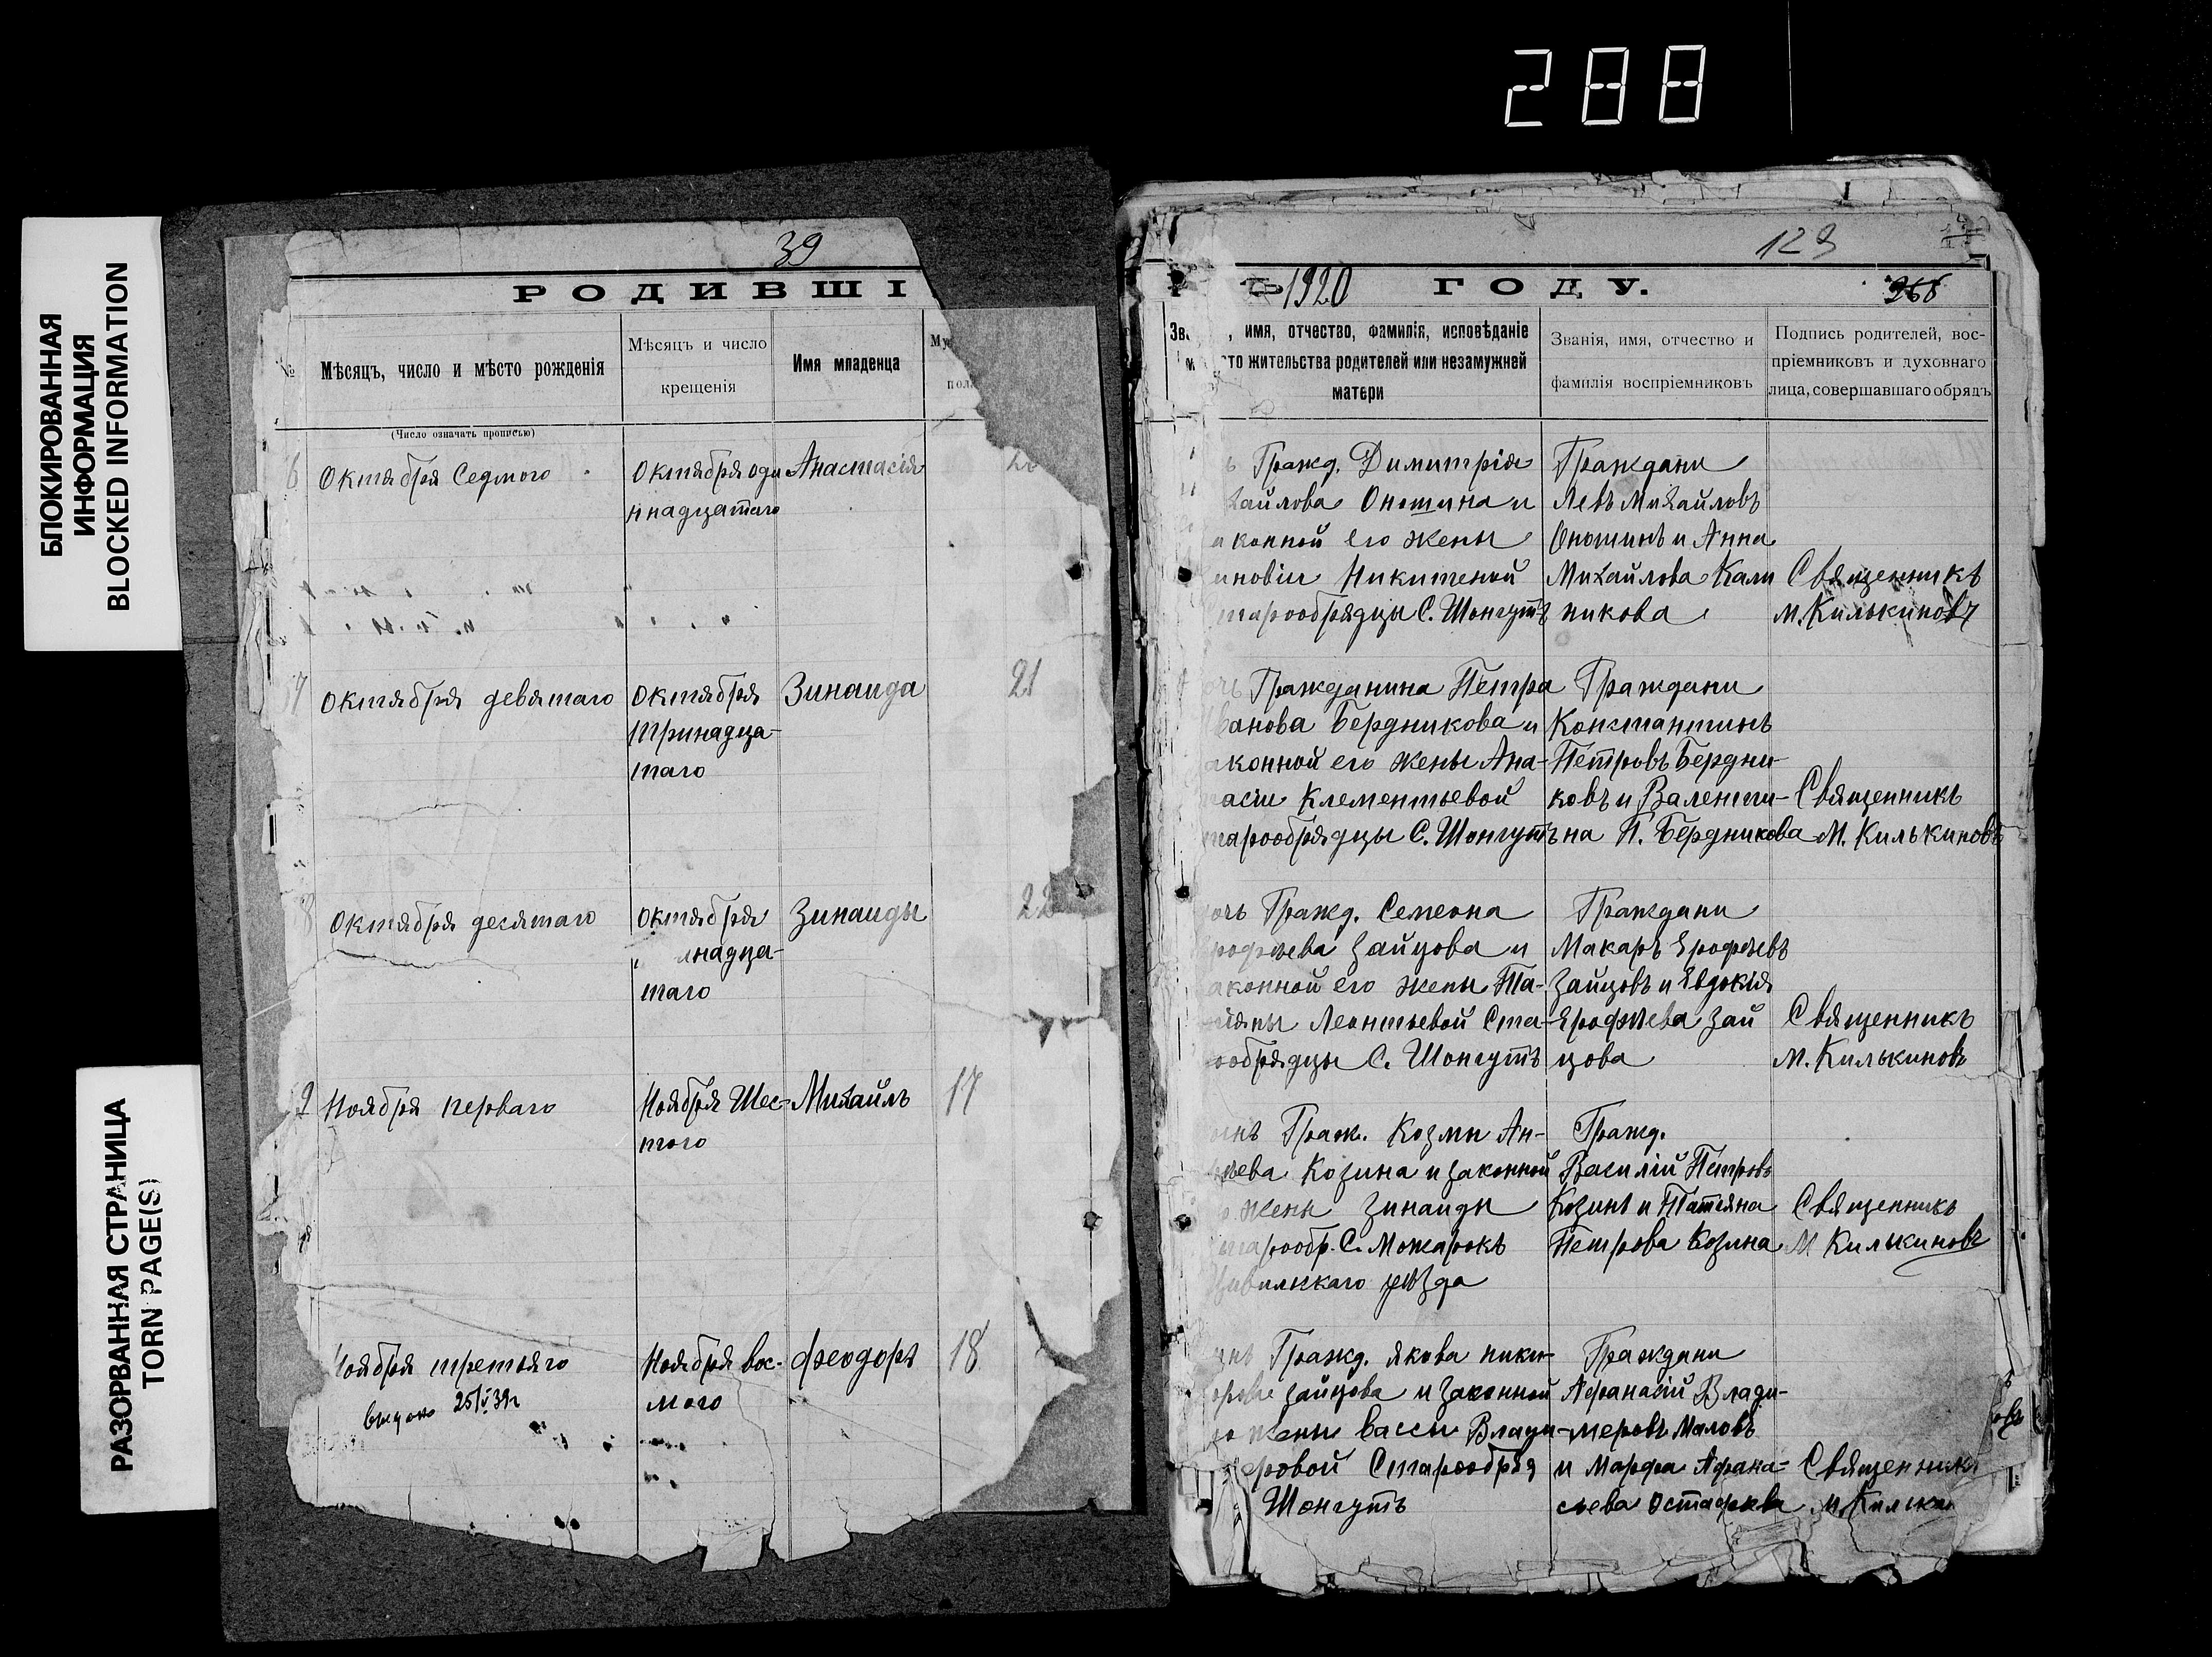 288
БЛОКИРОВАННАЯ
ИНФОРМАЦИЯ
BLOCKED INFORMATION
РАЗОРВАННАЯ СТРАНИЦА
TORN PAGE(S)
39
РОДИВШІ
№
Мѣсяцъ, число и мѣсто рожденія
Мѣсяцъ и число
крещенія
Имя младенца
(Число означать прописью)
6 Октября Седмого
Октября оди
ннадцатаго
Анастасія
7 Октября девятаго
Октября
тринадца-
таго
Зинаида
21
8 Октября десятаго
Октября
надца-
таго
Зинаиды
22
9 Ноября перваго
Ноября Шес-
того
Михаилъ
17
Ноября третьяго
25/V 39г
Ноября вос-
мого
Феодоръ
18
123
Ъ 1920 ГОДУ.
268
имя, отчество, фамилія, исповѣданіе
сто жительства родителей или незамужней
матери
Званія, имя, отчество и
фамилія воспріемниковъ
Подпись родителей, вос-
пріемниковъ и духовнаго
лица, совершавшаго обрядъ
Гражд. Димитрія
хайлова Оношина и
аконной его жены
иновіи Никитеной
тарообрядцы С. Шонгутъ
Граждани
Левъ Михайловъ
Оношинъ и Анна
Михайлова Кали
никова
Священникъ
М. Килькиновъ
очь Гражданина Петра
ванова Бердникова и
аконной его жены Ана-
тасіи Клементьевой
тарообрядцы С. Шонгутъ
Граждани
Константинъ
Петровъ Бердни-
ковъ и Валенти-
на П. Бердникова
Священникъ
М. Килькиновъ
очь Гражд. Семеона
рофѣева Зайцова и
аконной его жены Та-
ьяны Леонтьевой Ста-
рообрядцы С. Шонгутъ
Граждани
Макаръ Ерофѣевъ
Зайцовъ и Евдокія
Ерофѣева Зай
цова
Священникъ
М. Килькиновъ
ынъ Граж. Козмы Ан-
ѣева Козина и законной
жены Зинаиды
тарообр. С. Можарокъ
Цивильскаго уѣзда
Гражд.
Василій Петровъ
Козинъ и Татьяна
Петрова Козина
Священникъ
М Килькиновъ
ынъ Гражд. Якова Ники-
форова Зайцова и законной
го жены Вассы Влади-
еровой Старообряд
Шонгутъ
Граждани
Афанасій Влади-
меровъ Маловъ
и Марфа Афана-
сьева
Священникъ
М. Кильки